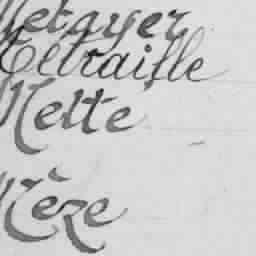 Metayer
Eltraille
Melte
Mèze